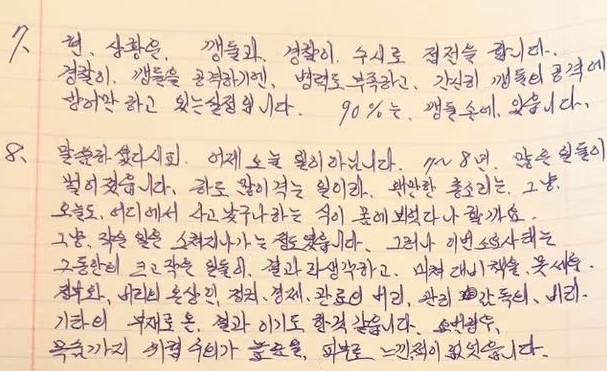 7. 현, 상황은, 깽들과, 경찰이, 수시로 접전을 합니다.
경찰이, 깽들을 공격하기엔, 병력도 부족하고, 간신히 깽들의 공격에
방어만 하고 있는 실정입니다. 90%는, 깽들 손에, 있습니다.
8. 말씀하셨다시피, 어제 오늘 일이 아닙니다. 7~8년, 많은 일들이
벌어졌습니다, 하도 많이 겪는 일이라, 왠만한 총소리는, 그냥,
오늘도, 어디에서 사고 났구나 하는 식이 몸에 보였다나 할까요.
그냥, 작은 일은 스쳐지나가는 정도였습니다. 그러나 이번 소요사태는
그동안의 크고 작은 일들의, 결과라 생각하고, 미쳐 대비책을, 못세운
정부와, 비리의 온상인, 정치, 경제, 관료의 비리, 관리 감독의, 비리.
기타의 부재로 온, 결과이기도 한것 같습니다.
목숨까지 위협 수위가 높음을, 피부로 느낀적이 없었습니다.